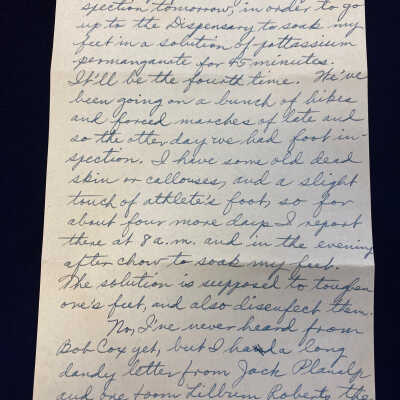 spection tomorrow, in order to go
up to the Dispensary to soak my
feet in a solution of pottassium
permanganate for 45 minutes.
It'll be the fourth time. We've
been going on a bunch of hikes
and forced marches of late and
so the other day we had foot in-
spection. I have some old dead
skin or callouses, and a slight
touch of athlete's foot, so for
about four more days I report
there at 8 a.m. and in the evening
after chow to soak my feet.
The solution is supposed to toughen
one's feet, and also disenfect them.
No, I've never heard from
Bob Cox yet, but I had a long
dandy letter from Jack Planalp
and one from Lilburn Roberts, the